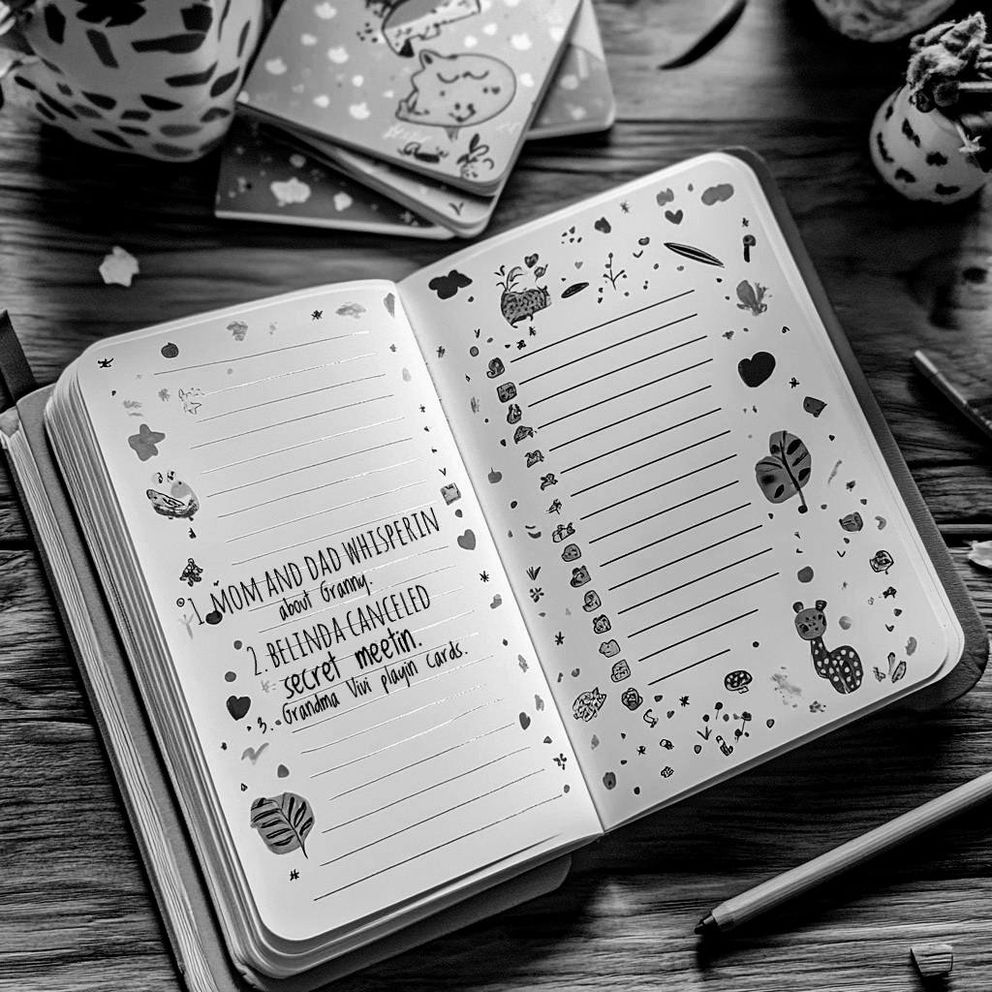 1. MOM AND DAD WHISPERIN
about Granny.
2. BELINDA CANCELED
secret meetin.
3. Grandma Vivi playin cards.